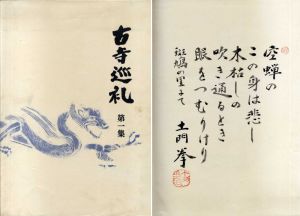 古寺巡礼
第一集
空蝉の
この身は悲し
木枯しの
吹き通るとき
眼をつむりけり
斑鳩の里にて
土門拳